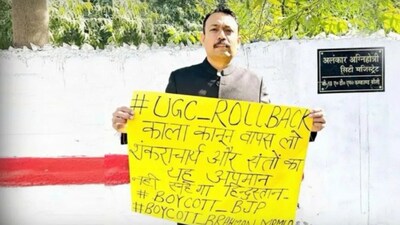 अलंकार अग्निहोत्री
सिटी मजिस्ट्रेट
#UGC_ROLLBACK
काला कानून वापस लो
शंकराचार्य और संतों का
यह अपमान
नहीं सहेगा हिन्दुस्तान-
#BOYCOTT_BJP
#BOYCOTT_BRAHMAN